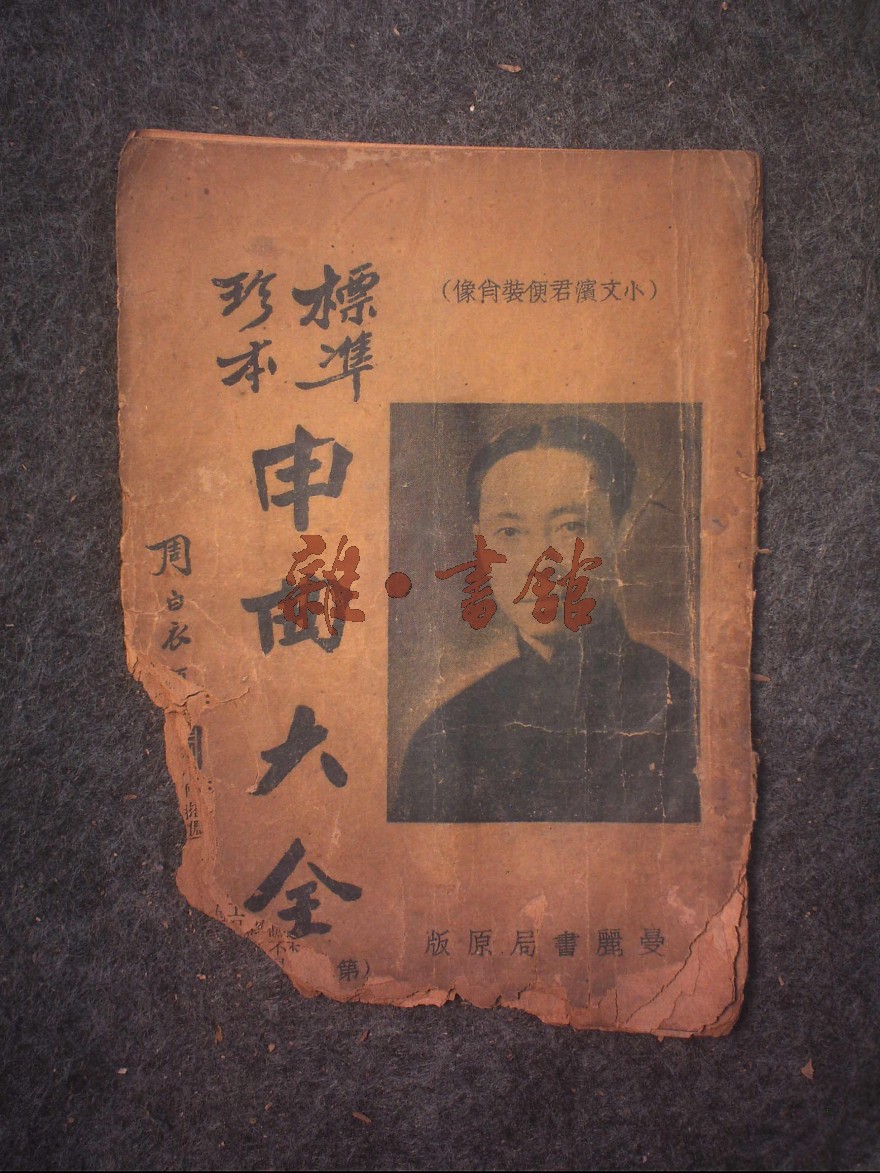 標準
珍本
申曲大全
(小文濱君便裝肖像)
周白衣
曼麗書局原版
第
雜·書館